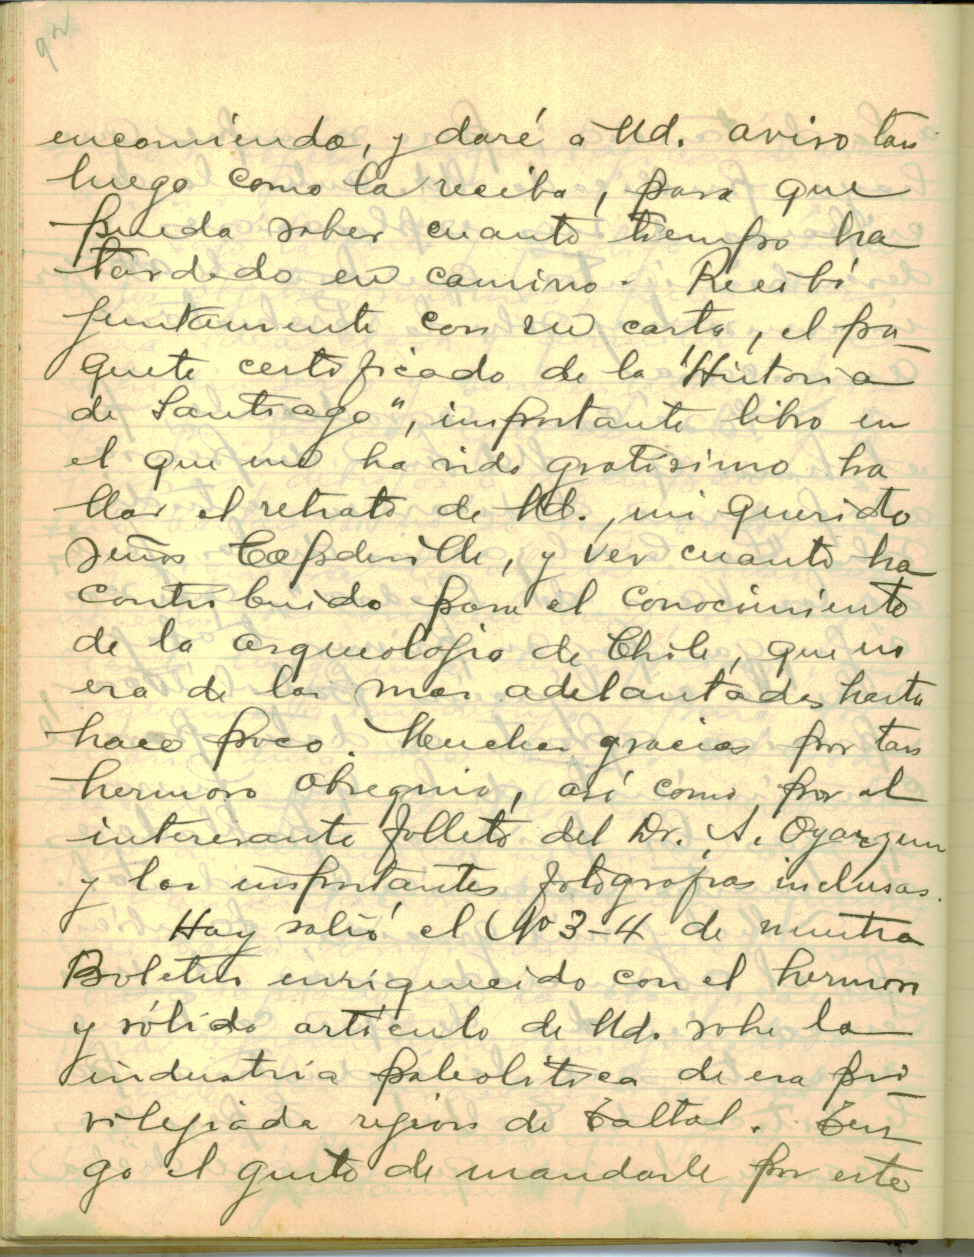 92
encomienda, y daré a Ud. aviso tan
luego como la reciba, para que
pueda saber cuanto tiempo ha
tardado en camino. Recibí
juntamente con su carta, el pa-
quete certificado de la "Historia
de Santiago", importante libro en
el que me ha sido gratísimo ha
llar el retrato de Ud., mi querido
señor Capdeville, y ver cuanto ha
contribuido para el conocimiento
de la arqueología de Chile, que no
era de las mas adelantadas hasta
hace poco. Muchas gracias por tan
hermoso obsequio, así como por el
interesante folleto del Dr. A. Oyarzun
y las importantes fotografías inclusas.
Hoy salió el No 3-4 de nuestro
Boletin enriquecido con el hermoso
y sólido artículo de Ud. sobre la
industria paleolitica de esa pri-
vilegiada region de Taltal. Ten-
go el gusto de mandarle por este